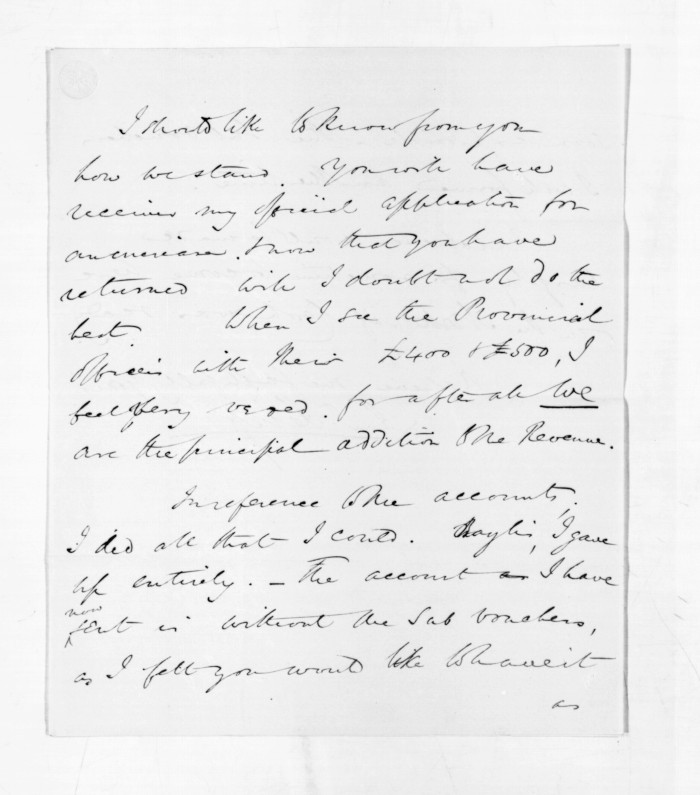 I should like to know from you
how we stand. You will have
received my official application for
an increase. & now that you have
returned will I doubt not do the
best. When I see the Provincial
Officers with their £400 & £500, I
feel very vexed. for after all We
are the principal addition to the Revenue.
In reference to the accounts,
I did all that I could. Baylis, I gave
up entirely. – The account as I have
now
sent is without the Sub Vouchers,
as I felt you would like to have it
as